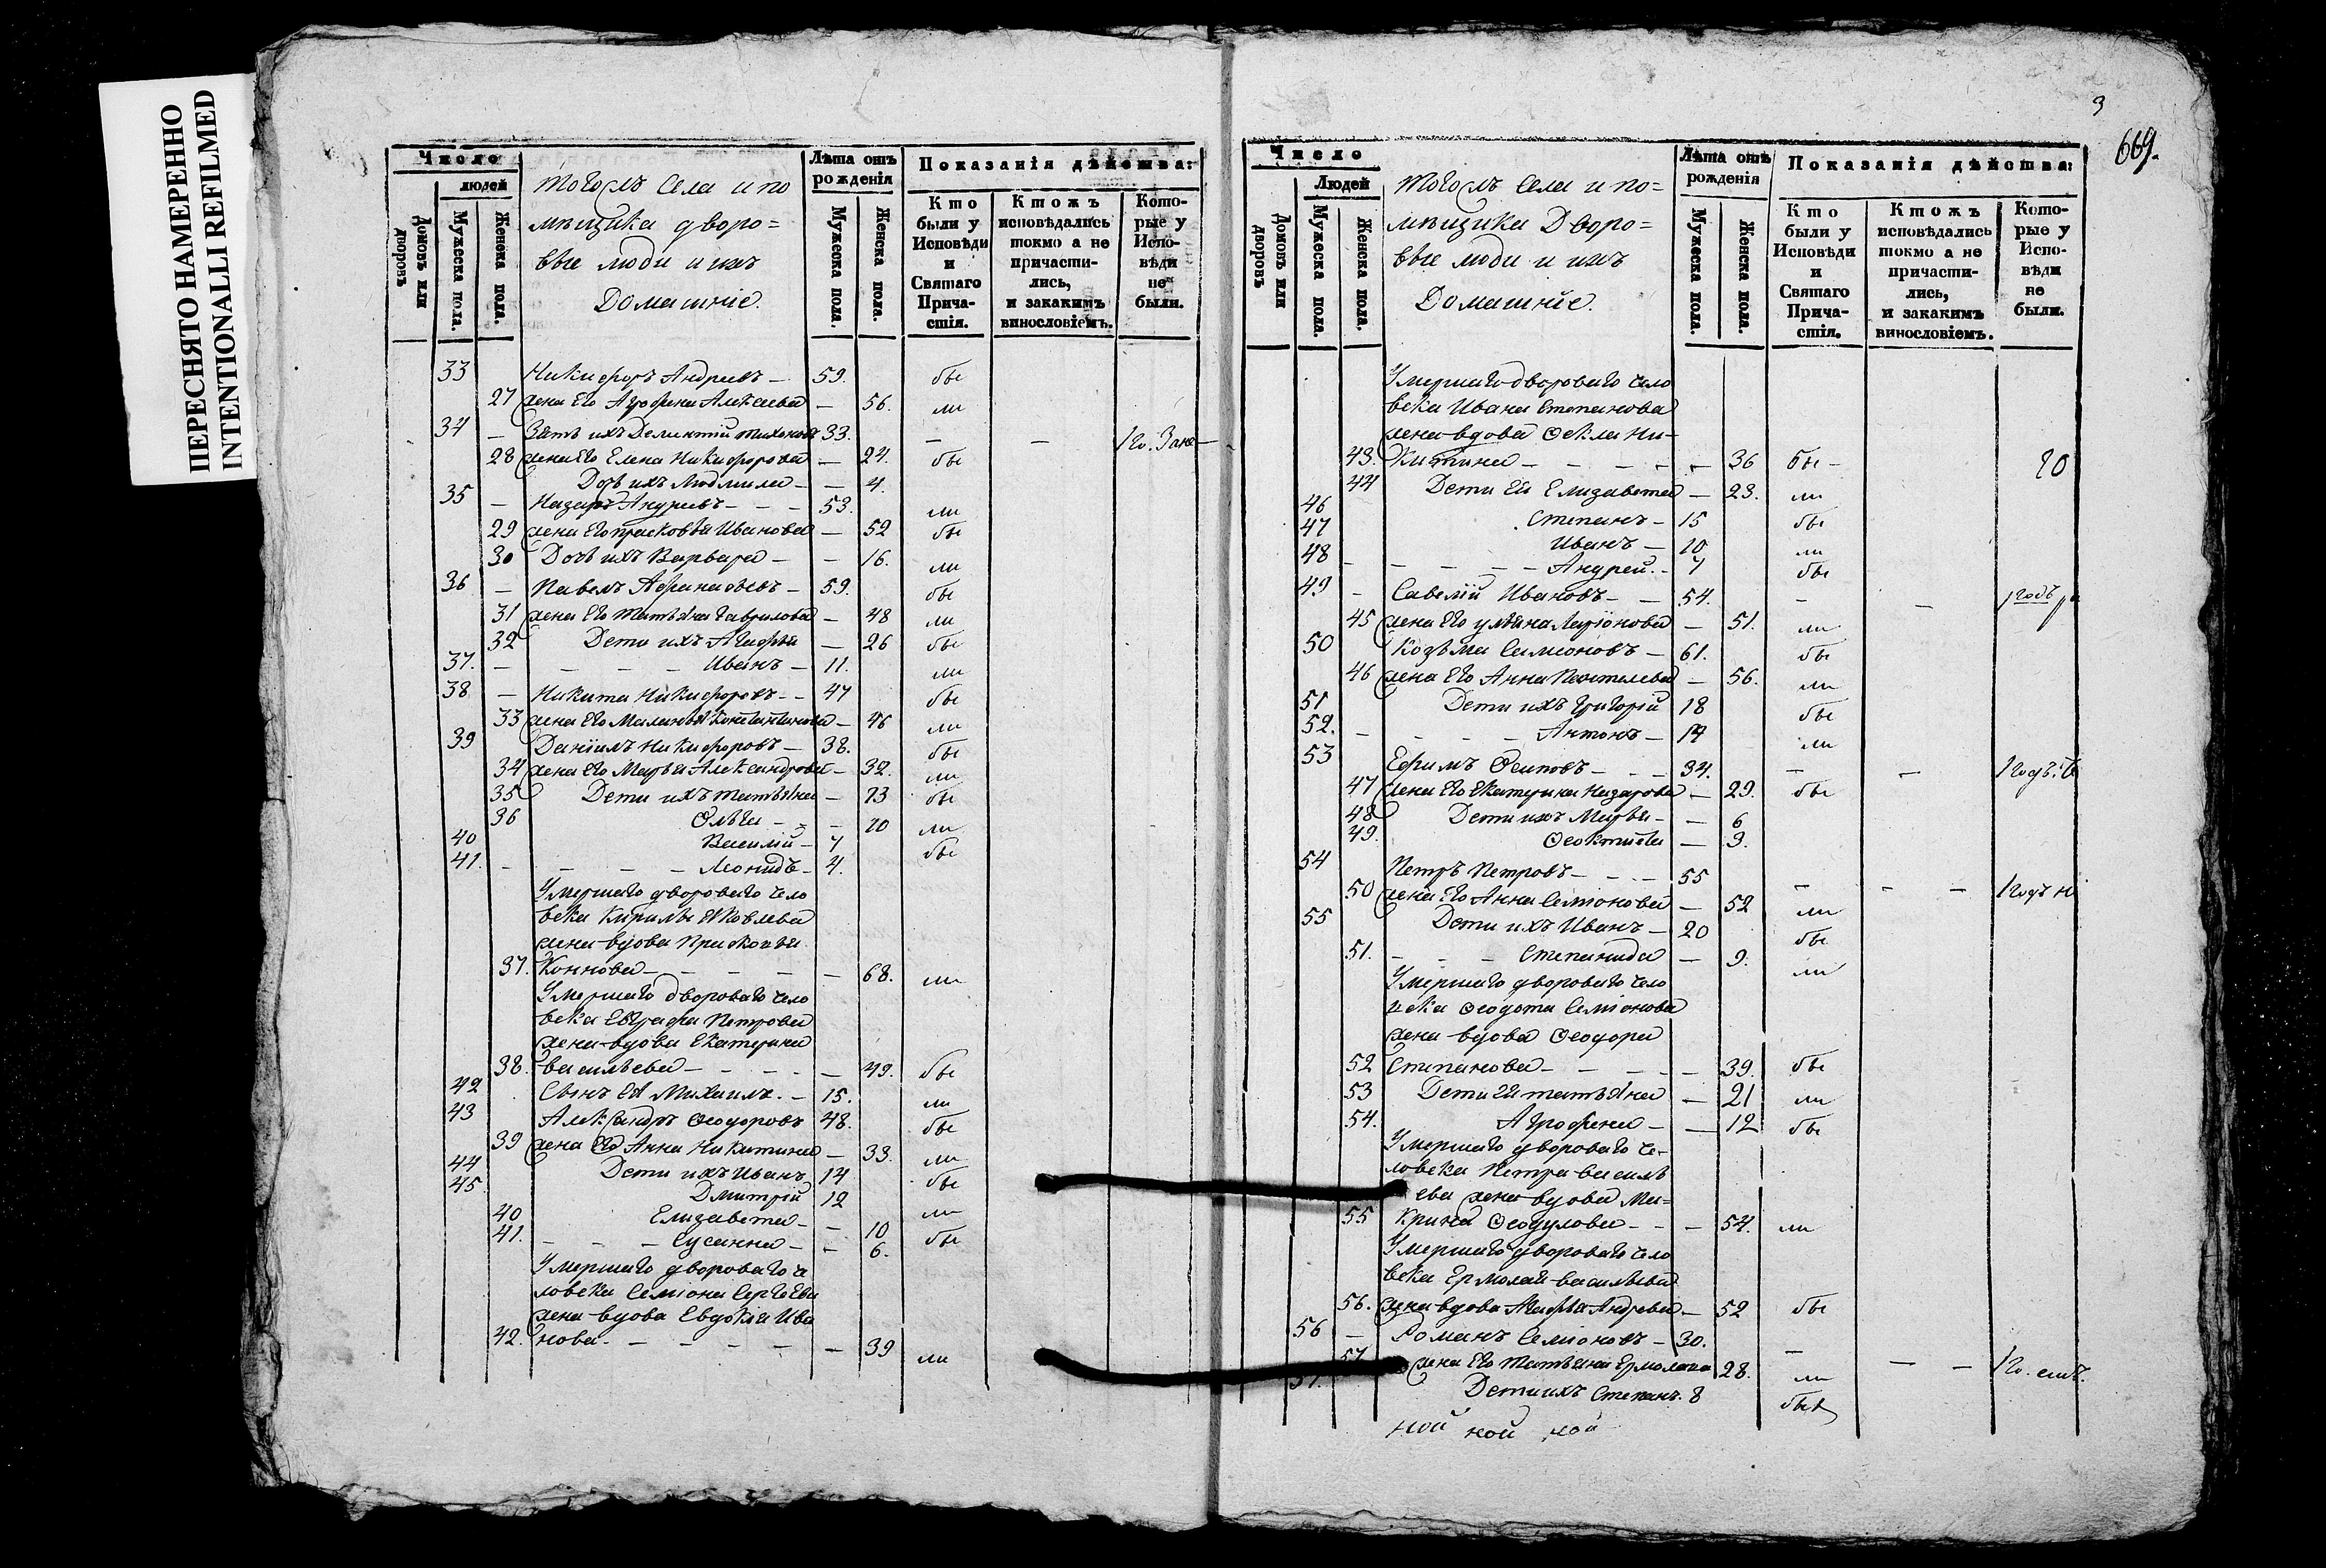 ПЕРЕСНЯТО НАМЕРЕННО
INTENTIONALLI REFILMED
Число
людей
Домовъ или дворовъ
Мужеска пола.
Женска пола.
тогожъ Села и по
мѣщика дворо=
вые люди и ихъ
Домашніе.
Лѣта отъ рожденія
Мужеска пола.
Женска пола.
Показанія дѣйства:
Кто были у Исповѣди и Святаго Прича-стія.
Ктожъ исповѣдались токмо а не причасти-лись, и закакимъ винословіемъ.
Кото-рые у Испо-вѣди не были.
33 Никифоръ Андреевъ — 59. бы
27 жена Его Агрофена Алексеева — 56. ли
34 — Зять ихъ тихоновъ 33. — —
28 жена Его Елена Никифорова — 24. бы
Дочь ихъ Людмила — — 4.
35 — Назаръ Андреевъ — — 53. ли
29 жена Его прасковья Иванова — 52 бы
30 Дочь ихъ Варвара — — 16. ли
36 — Павелъ Афанасьевъ — 59. бы
31 жена Его Татьяна Гаврилова — 48 ли
32 Дети ихъ Агафья — 26 бы
37. — — — — Иванъ — 11. ли
38 — Никита Никифоровъ — — 47 бы
33 жена Его Маланья Константинова — 46 ли
39 Данiилъ Никифоровъ — 38. бы
34 жена Его Марья Александрова — 32. ли
35 Дети ихъ татьяна — 13 бы
36 Ольга — — — 10 ли
40 Василiй — 7 бы
41. — — — — Леонидъ — 4.
Умершаго двороваго чело
века Кирилы Яковлева
жена вдова Прасковья
37. Коннова — — — — — 68. ли
Умершаго двороваго чело
века Евграфа Петрова
жена вдова Екатерина
38. васильева — — — — — 49. бы
42 Сынъ Ея Михаилъ. — 15. ли
43 Александръ Ѳеодоровъ 48. бы
39 жена Его Анна Никитина — 33. ли
44 Дети ихъ Иванъ 14 бы
45 Дмитрiй 12 ли
40 Елизавета — — 10 бы
41. — — — Сусанна — — 6.
Умершаго двороваго че
ловека Семiона Сергеева
жена вдова Евдокiя Ива
42. нова — — — — — — 39 ли
3
669.
Число
Людей
Домовъ или дворовъ
Мужеска пола.
Женска пола.
тогожъ Села и по=
мѣщика Дворо=
вые люди и ихъ
Домашнiе.
Лѣта отъ рожденія
Мужеска пола.
Женска пола.
Показанія дѣйства:
Кто были у Исповѣди и Святаго Прича-стія.
Ктожъ исповѣдались токмо а не причасти-лись, и закакимъ винословіемъ.
Кото-рые у Испо-вѣди не были.
Умершаго двороваго чело
века Ивана Степанова
жена вдова Ѳекла Ни-
43. китина — — — — — 36 бы —
44 Дети Ея Елизавета — 23. ли
46 Степанъ — 15 бы
47 Иванъ — 10 ли
48 — — — — — Андрей. — 7 бы
49 — Савелiй Ивановъ — — 54. — — 1 годъ
45 жена Его ульяна Ларiонова — 51. ли
50 Козьма Симионовъ — 61. бы
46 жена Его Анна — 56. ли
51 Дети ихъ Григорiй 18 бы
52. — — — — Антонъ — 14 ли
53 Ефимъ Осиповъ — — — 34. — — 1 годъ.
47 жена Его Екатерина Назарова — 29. бы
48 Дети ихъ Марья — — 6
49. Ѳеоктиста — 3.
54 Петръ Петровъ — — — 55 — — — 1 годъ
50 жена Его Анна Семiонова — 52 ли
55 Дети ихъ Иванъ — 20 бы
51. — — — Степанида — 9. ли
Умершаго двороваго чело
века Ѳеодота Семiонова
жена вдова Ѳеодора
52 Степанова — — — — — 39. бы
53 Дети Ея татьяна — 21 ли
54. Агрофена — — 12 бы
Умершаго двороваго че-
ловека Петра василь
ева жена вдова Ма=
55 крина Ѳеодулова — — — 54. ли
Умершаго двороваго чело
века Ермолая васильева
56. жена вдова Агафья Андреева — 52 бы
56 — Романъ Семiоновъ — 30. — — —
57 жена Его Татьяна Ермолаева 28. ли
57. Дети ихъ Степанъ. 8 бы
ной ной ной